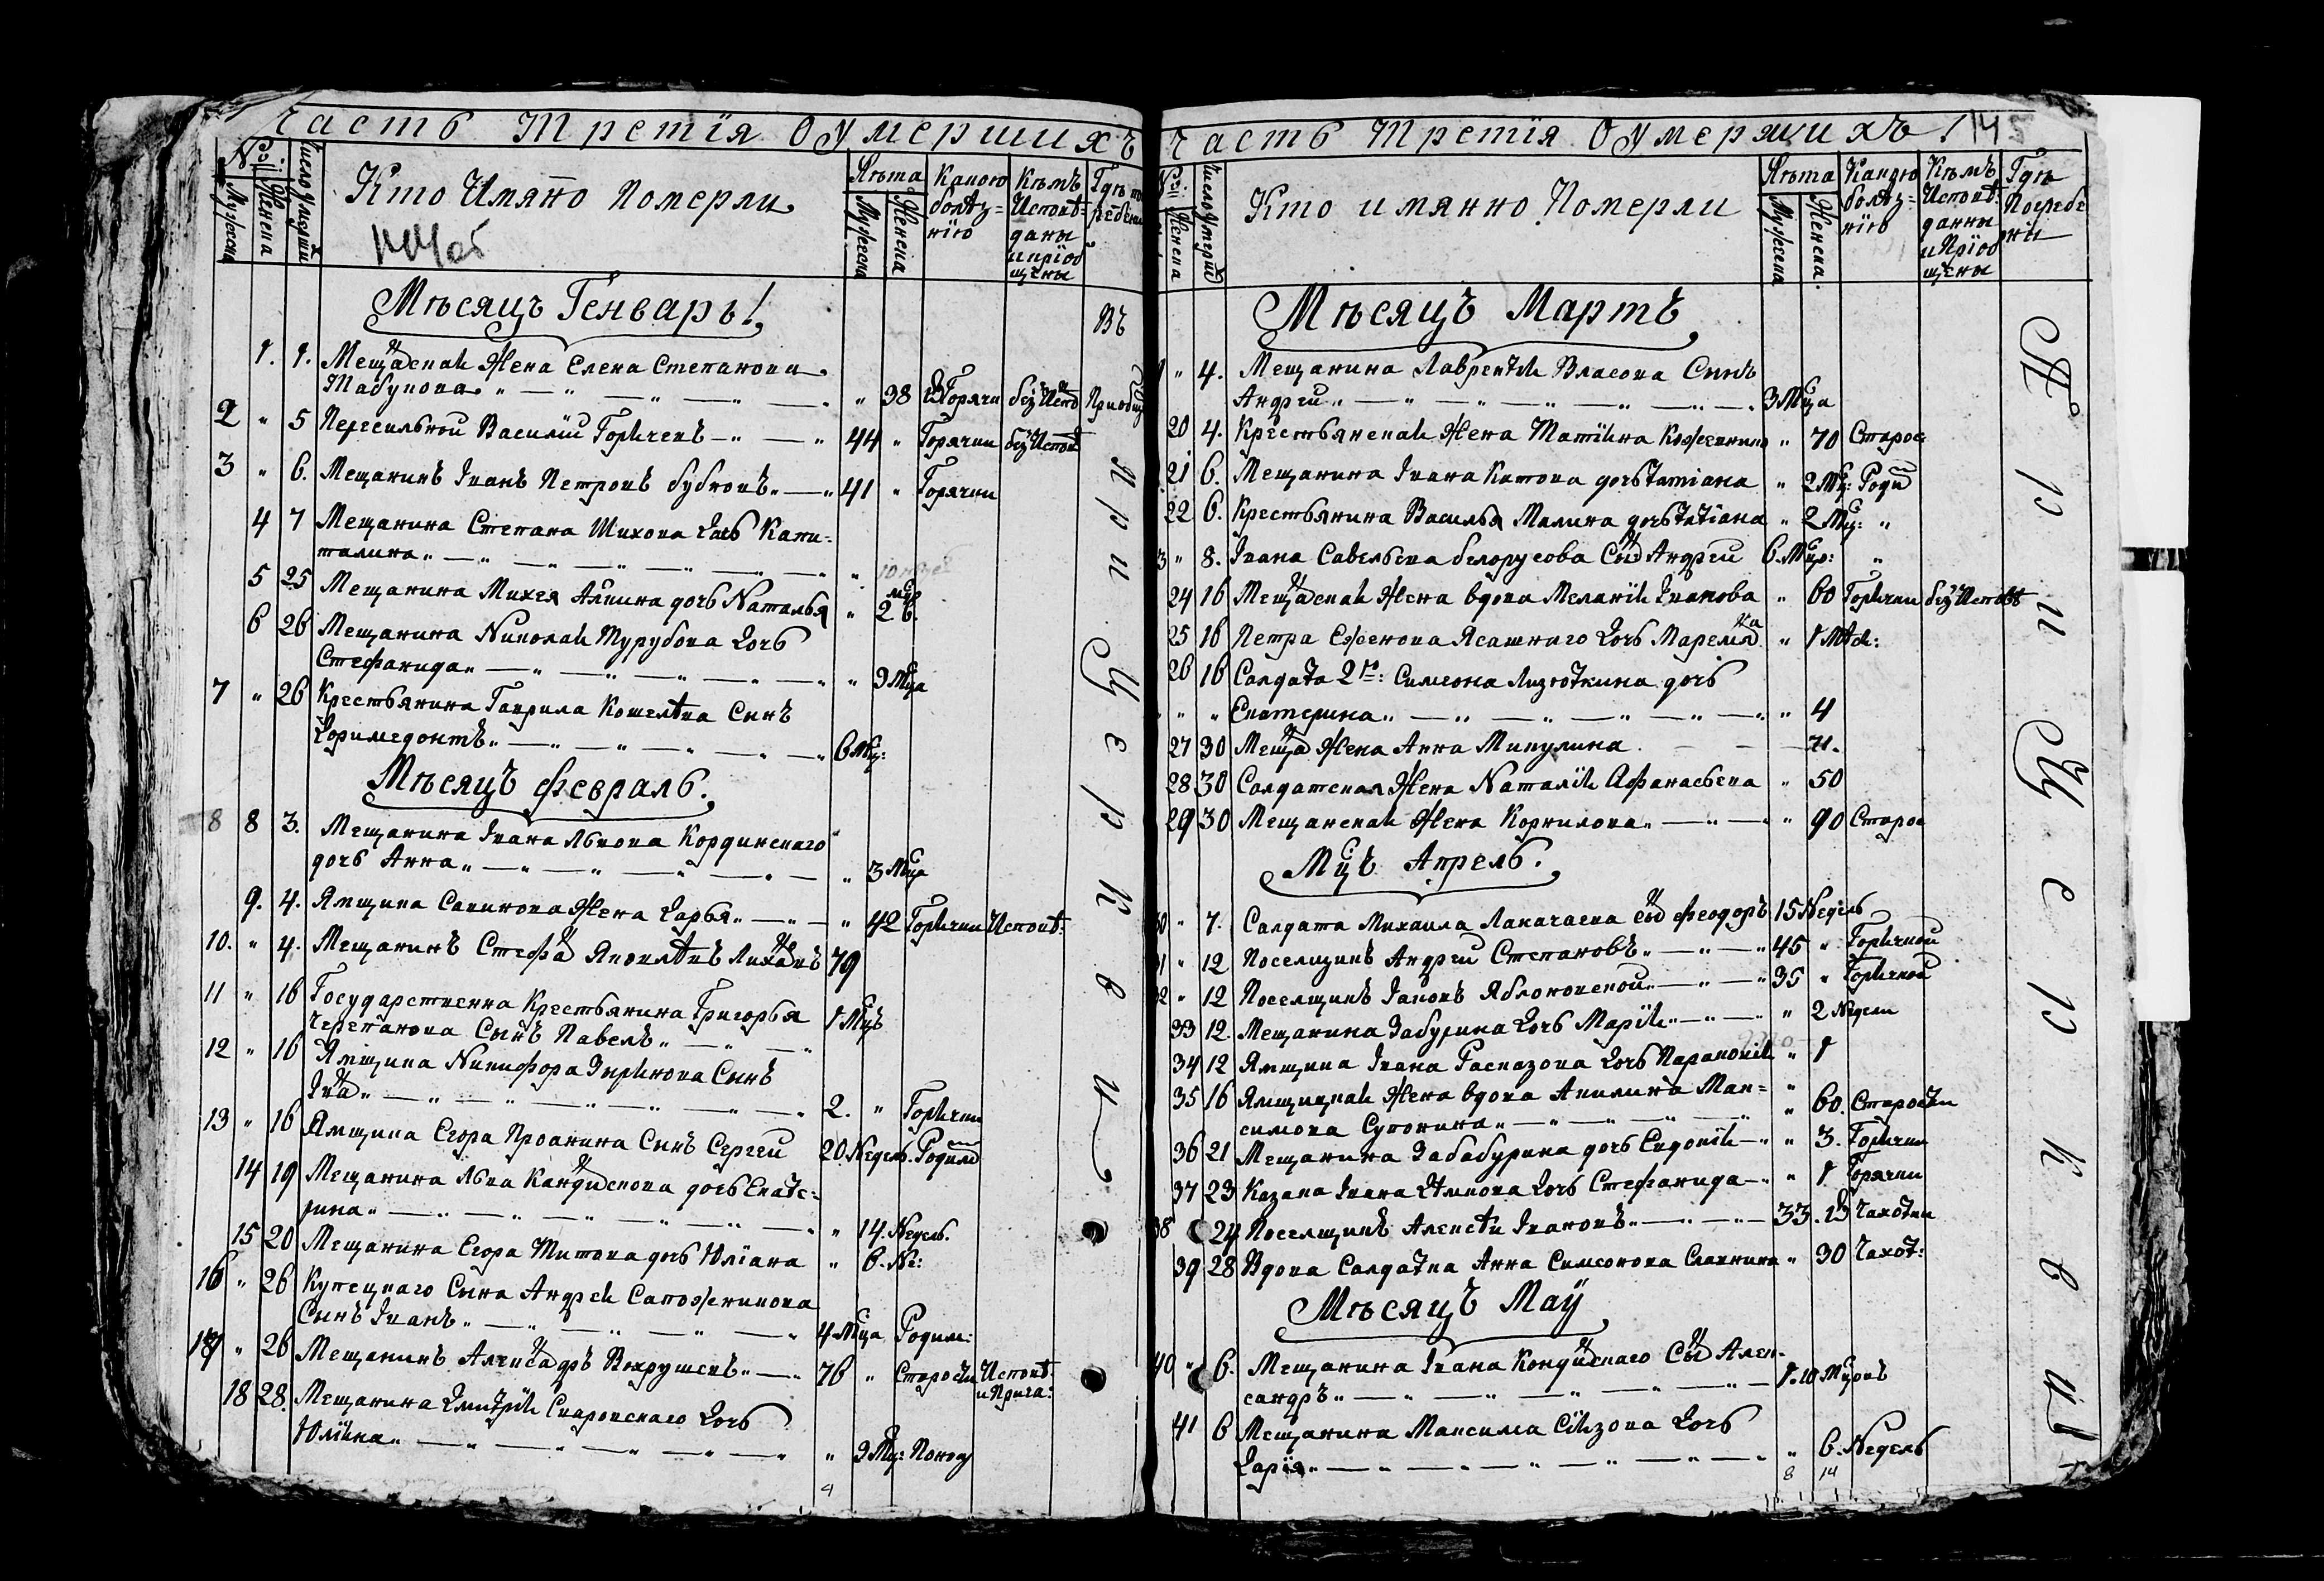 Часть Третїя Оумершихъ
№
Мужеска
Женска
Число умерши
Кто Имянно Померли
Лѣта
Мужеска
Женска
Какою болѣз=
нїю
Кѣмъ Исповѣ=
даны
и прїоб
щены
Мѣсяцъ Генварь!
1. 1. Мещанская Жена Елена Степанова
Табунова „ 38 Горячк без Испо
2 „ 5 Пересыльной Василїй Горячевъ 44 „ Горячки без Испов
3 „ 6. Мещанинъ Iванъ Петровъ Бубновъ 41 „ Горячки
4 7 Мещанина Степана Шихова Дочь Капи-
талина „
5 25 Мещанина Михея дочь Наталья „ 2
6 26 Мещанина Николая Турубова Дочь
Стефанида „ 9 Мца
7 „ 26 Крестьянина Гаврила Кошелева Сынъ
6 Мц:
Мѣсяцъ Февраль.
8 8 3. Мещанина Iвана Львова Кордински
дочь Анна „ 3 Мца
9. 4. Ямщика Савинова Жена Дарья „ 42 Горячки Исповѣ:
10. „ 4. Мещанинъ Стефа 79
11 „ 16 Государственна Крестьянина Григорья
Черепанова Сынъ Павелъ 1 Мцъ
12 „ 16 Ямщика Никифора Зырянова Сынъ
Iва 2. „ Горячки
13 „ 16 Ямщика Егора Пронина Сынъ Сергей 20 Недель. Родим
14 19 Мещанина Льва дочь Екате-
рина „ 14. Недель.
15 20 Мещанина Егора Титова дочь Юлїана „ 6. Не:
16 „ 26 Купецкаго Сына Андрея Сапожникова
Сынъ Iванъ 4 Мца Родим:
17 „ 26 Мещанинъ Александръ Вохрушевъ 76 „ Старости Исповѣ.
18 28. Мещанина Дмитрїя Дочь
Юлїяна „ 9 Мц:
4
Въ
Приходс
при Церкви
Часть Третїя Оумершихъ! 145
Женска
Число Умерши
Кто имянно Померли
Лѣта
Мужеска
Женска.
Какою
болѣз=
нїю
Кѣмъ
Исповѣ
данны
и Прїоб
щены
Гдѣ
Погребе
ны
Мѣсяцъ Мартъ
„ 4. Мещанина Лаврентїя Власова Сынъ
Андрей 3 Мца
20 4. Крестьянская Жена Матїяна Кожевникова „ 70 Старос
21 6. Мещанина Iвана Катова дочь Татїана „ 2 Мц: Роди
22 6. Крестьянина Василья Малина дочь Татїана „ 2 Мц: „
3 „ 8. Iвана Савельева Белорусова Сы Андрей 6. Мцы: „
24 16 Мещанская Жена вдова Меланїя Iванова „ 60 Горячки без Исповѣ
25 16 Петра Ясашнаго Дочь Маремьяна „ 1 Мѣся:
26 16 Салдата 2го: Симеона Лизюткина дочь
„ „ Екатерина „ 4
27 30 Меща Жена Анна Микулина 71.
28 30 Салдатская Жена Наталїя Афанасьева „ 50
29 30 Мещанская Жена Корнилова „ 90 Старос
Мцъ Апрель.
30 „ 7. Салдата Михаила Лакачаева сы Феодоръ 15 Недель
31 „ 12 Поселщикъ Андрей Степановъ 45 „ Горячкой
32 „ 12 Поселщикъ Iаковъ Яблоновской 35 „ Горячкой
33 12. Мещанина Забурина Дочь Марїя „ 2 Недели
34 12 Ямщика Iвана Расказова Дочь Парасковїя „ 1
35 16 Ямщицкая Жена вдова Акилина Мак= „
симова Сутокина „ 60. Старости
36 21 Мещанина Забабурина дочь Евдокїя „ 3. Горячки
37 23 Казака Iвана Дочь Стефанида „ 1 Горячки
38 24 Поселщикъ Алексѣй Iвановъ 33. Чахотки
39 28 Вдова Салдатка Анна Симеонова „ 30 Чахот:
Мѣсяцъ Май
40 „ 6. Мещанина Iвана Кондинскаго Сы Алек-
сандръ 1. 10 Мцовъ
41 6 Мещанина Максима Сизова Дочь
Дарїя „ 6. Недель
8 14
При Церкви!